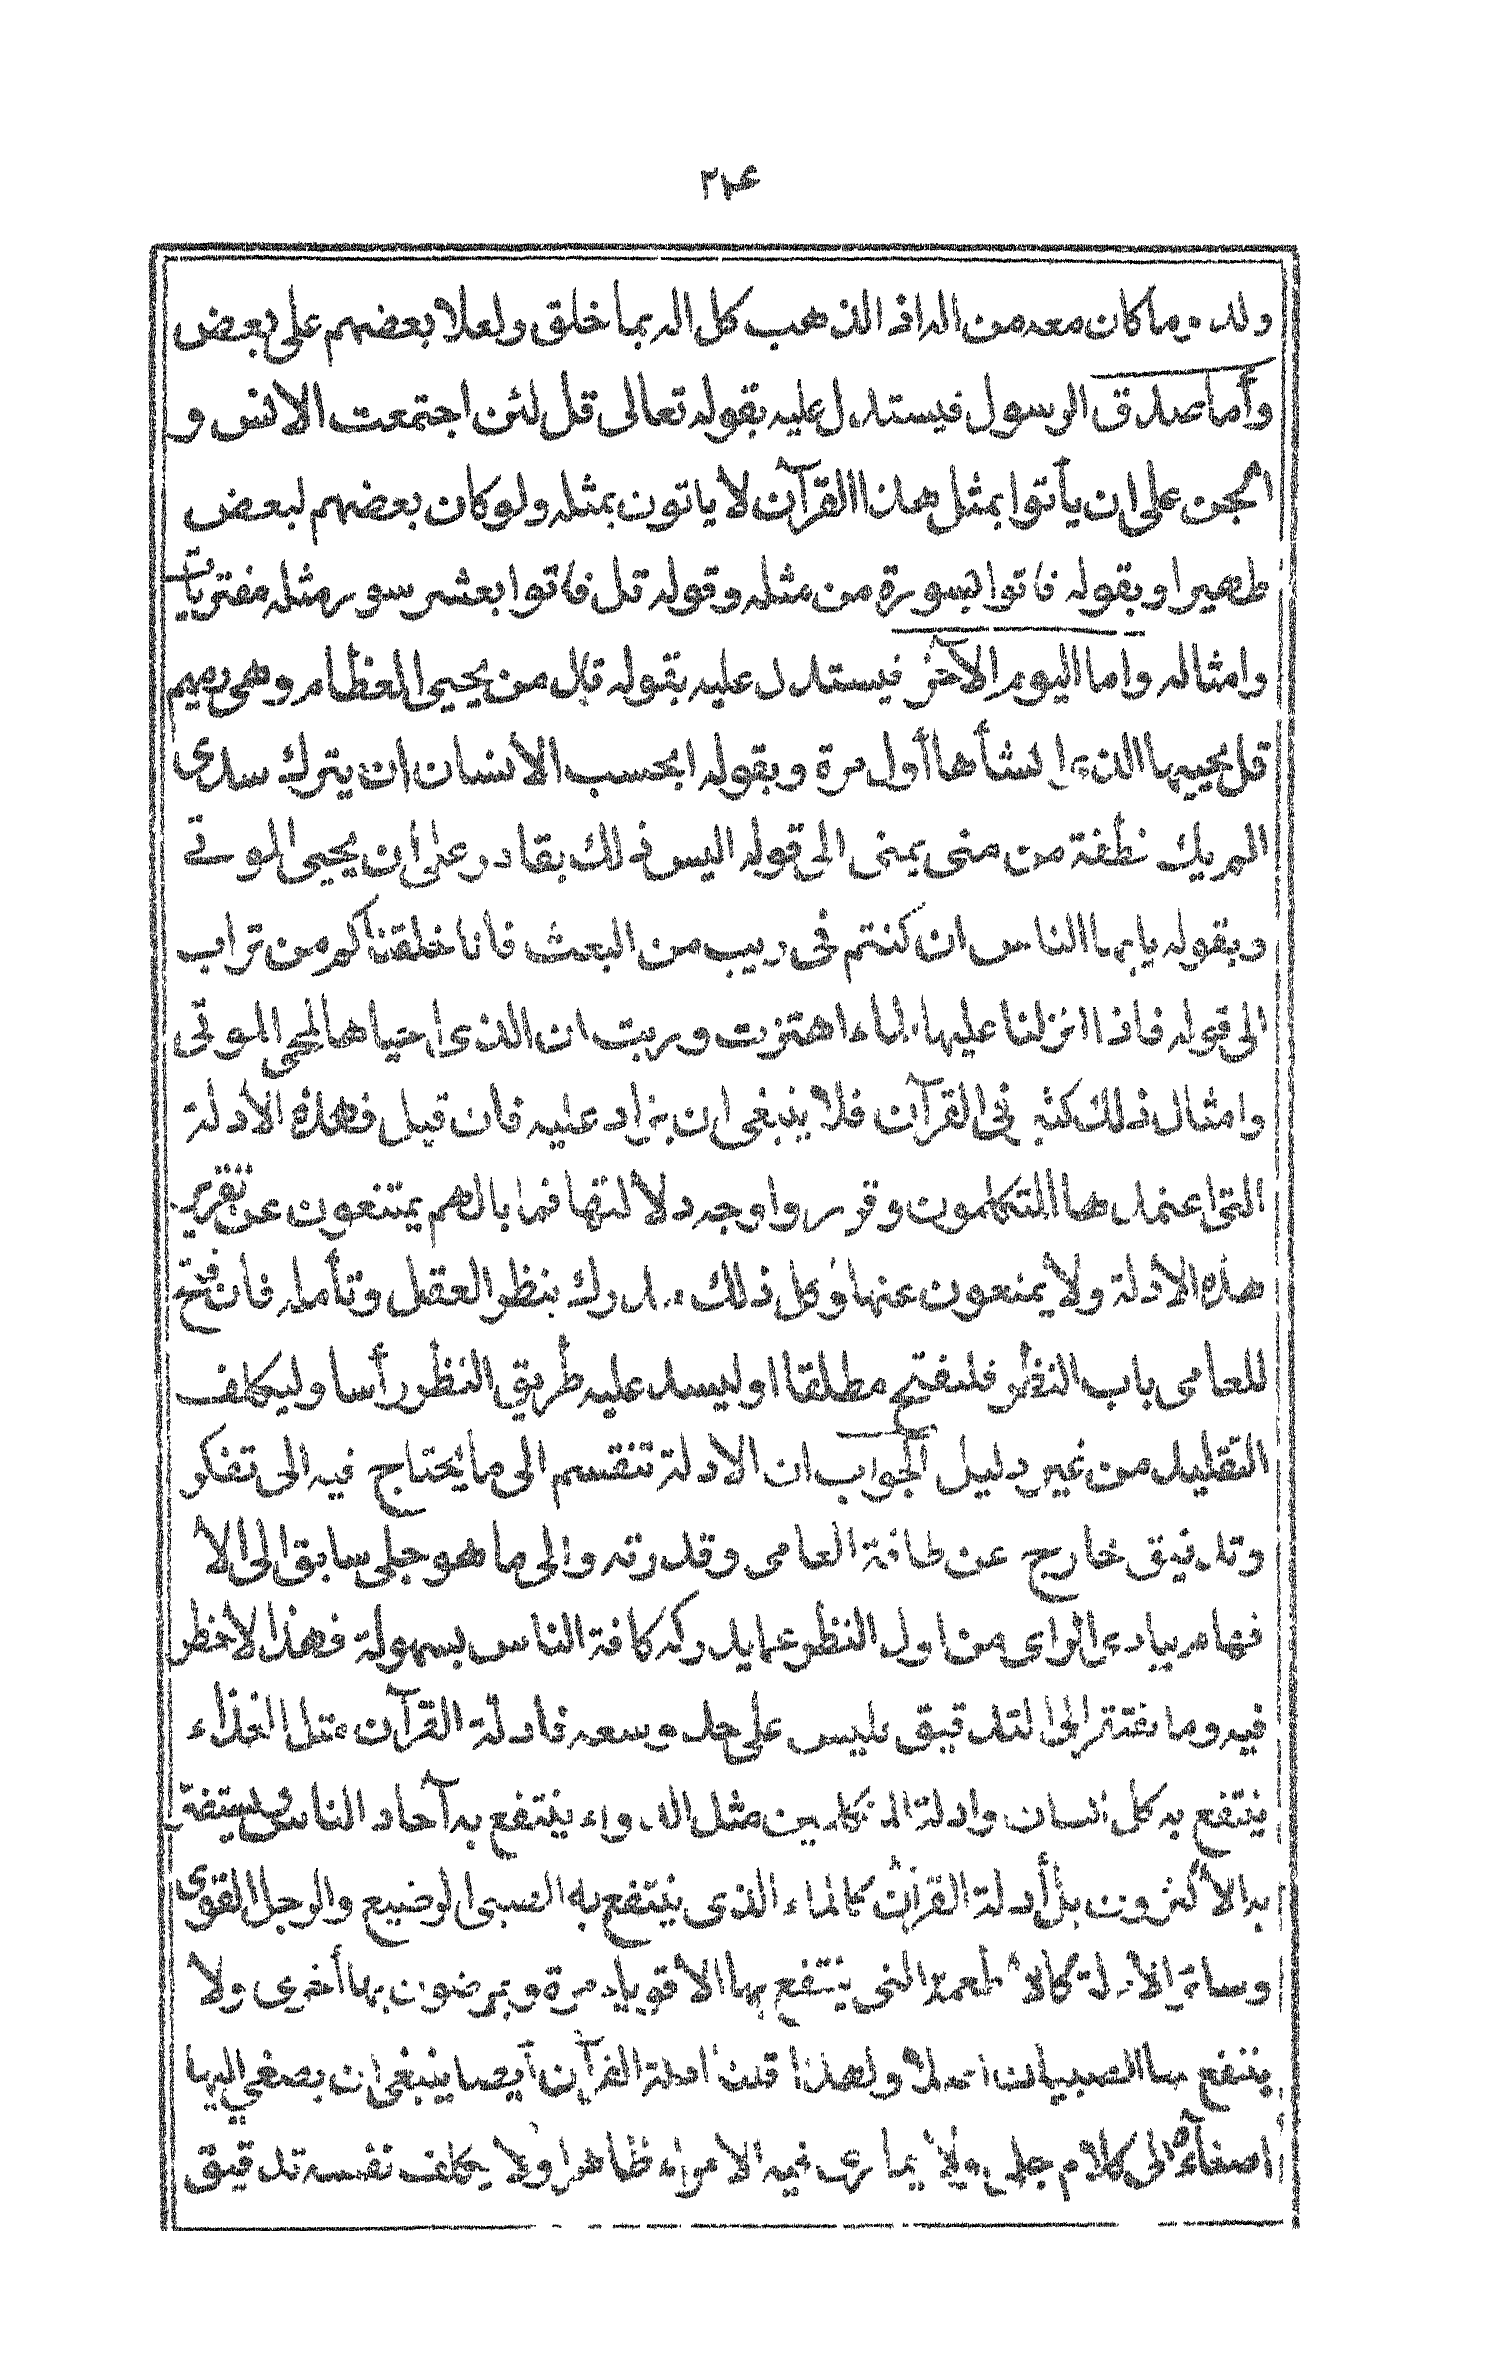 ۲۴
ولد وما كان معه من اله اذ الذهب كل اله بما خلق ولعلا بعضهم على بعض
وأما صدق الرسول فيستدل عليه بقوله تعالى قل لئن اجتمعت الانس و
الجن على ان يأتوا بمثل هذا القرآن لا ياتون بمثله ولو كان بعضهم لبعض
ظهيرا وبقوله فاتوا بسورة من مثله وقوله قل فاتوا بعشر سور مثله مفتريات
وامثاله واما اليوم الآخر فيستدل عليه بقوله قال من يحيي العظام وهى رميم
قل يحييها الذى انشأها أول مرة وبقوله ايحسب الانسان ان يترك سدى
الم يك نطفة من منى يمنى الى قوله اليس ذلك بقادر على ان يحيى الموتى
وبقوله يا يها الناس ان كنتم فى ريب من البعث فانا خلقناكم من تراب
الى قوله فاذا انزلنا عليها الماء اهتزت وربت ان الذى احياها لمحى الموتى
وامثال ذلك كثير فى القرآن فلا ينبغى ان يزاد عليه فان قيل فهذه الأدلة
التى اعتمدها المتكلمون وقرروا وجه دلالتها فما بالهم يمتنعون عن تقرير
هذه الأدلة ولا يمنعون عنها وكل ذلك مدرك بنظر العقل وتأمله فان فتح
للعامى باب النظر فليفتح مطلقا او ليسد عليه طريق النظر رأسا وليكلف
التقليد من غير دليل الجواب ان الادلة تنقسم الى ما يحتاج فيه الى تفكر
وتدقيق خارج عن طاقة العامى وقدرته والى ما هو جلى سابق الى الأ
فهام ببادى الراى من اول النظر مما يدركه كافة الناس بسهولة فهذا لا خطر
فيه وما يفتقر الى التدقيق فليس على حد وسعه فادلة القرآن مثل الغذاء
ينتفع به كل انسان وادلة المتكلمين مثل الدواء ينتفع به آحاد الناس ويستضر
به الأكثرون بل أدلة القرآن كالماء الذى ينتفع به الصبى الرضيع والرجل القوى
وسائر الأدلة كالأطعمة التى ينتفع بها الأقوياء مرة ويمرضون بها أخرى ولا
ينتفع بها الصبيان اصلا ولهذا قلنا ادلة القرآن أيضا ينبغى ان يصغى اليها
اصغآءه الى كلام جلى ولا يمارى فيه الا مراء ظاهرا ولا يكلف نفسه تدقيق